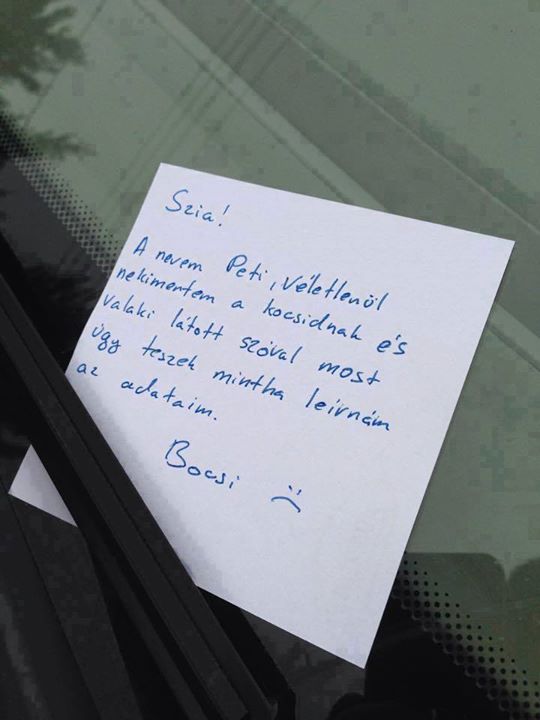 Szia!
A nevem Peti, véletlenül
nekimentem a kocsidnak és
valaki látott szóval most
úgy teszek mintha leírnám
az adataim.
Bocsi :(